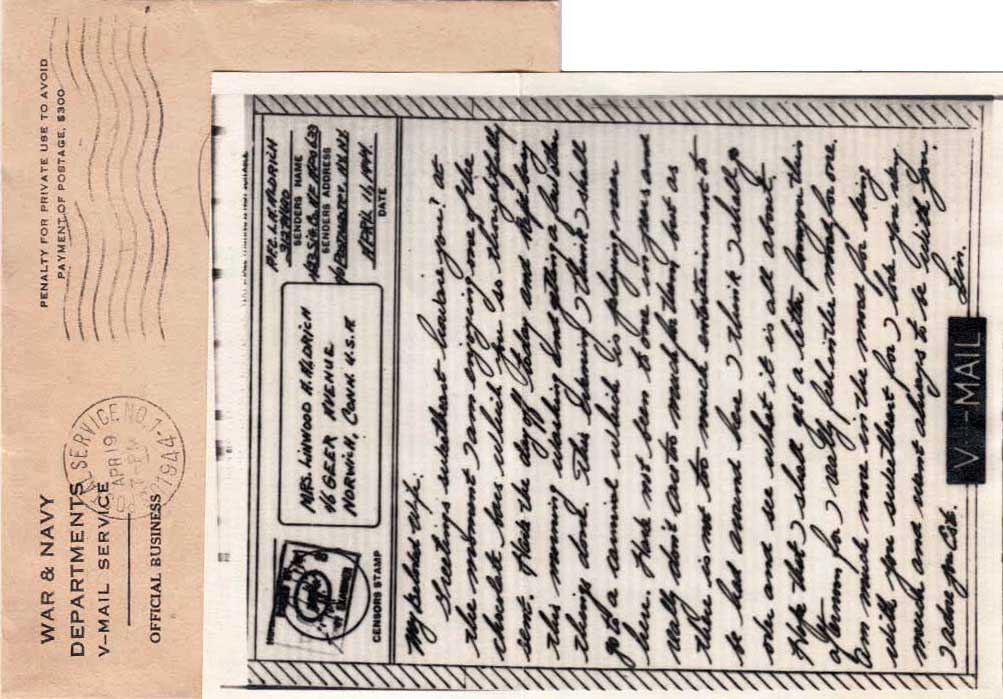 WAR & NAVY
DEPARTMENTS
V-MAIL SERVICE
OFFICIAL BUSINESS
SERVICE NO. 1
APR 19
1944
PENALTY FOR PRIVATE USE TO AVOID
PAYMENT OF POSTAGE, $300
CENSORS STAMP
MRS. LINWOOD A. ALDRICH
46 GEER AVENUE
NORWICH, CONN. U.S.A.
PFC. L.A. ALDRICH
SENDERS NAME
SENDERS ADDRESS
% POSTMASTER, NY. NY.
APRIL 11, 1944.
DATE
My darling wife:
Greetings sweetheart how are you? at
the moment I am enjoying one of the
chocolate bars which you so thoughtfully
sent. Had the day off today and kept busy
this morning washing and getting a few other
things done. This evening I think I shall
go to a carnival which is playing near
here. Have not been to one in years and
really don't care too much for them but as
there is not to much entertainment to
be had around here I think I shall go
over and see what it is all about.
Hope that I shall get a letter from you this
afternoon for I really feel in the mood for one.
Am much more in the mood for being
with you sweetheart for I love you very
much and want always to be with you.
I adore you
Lin.
V-MAIL